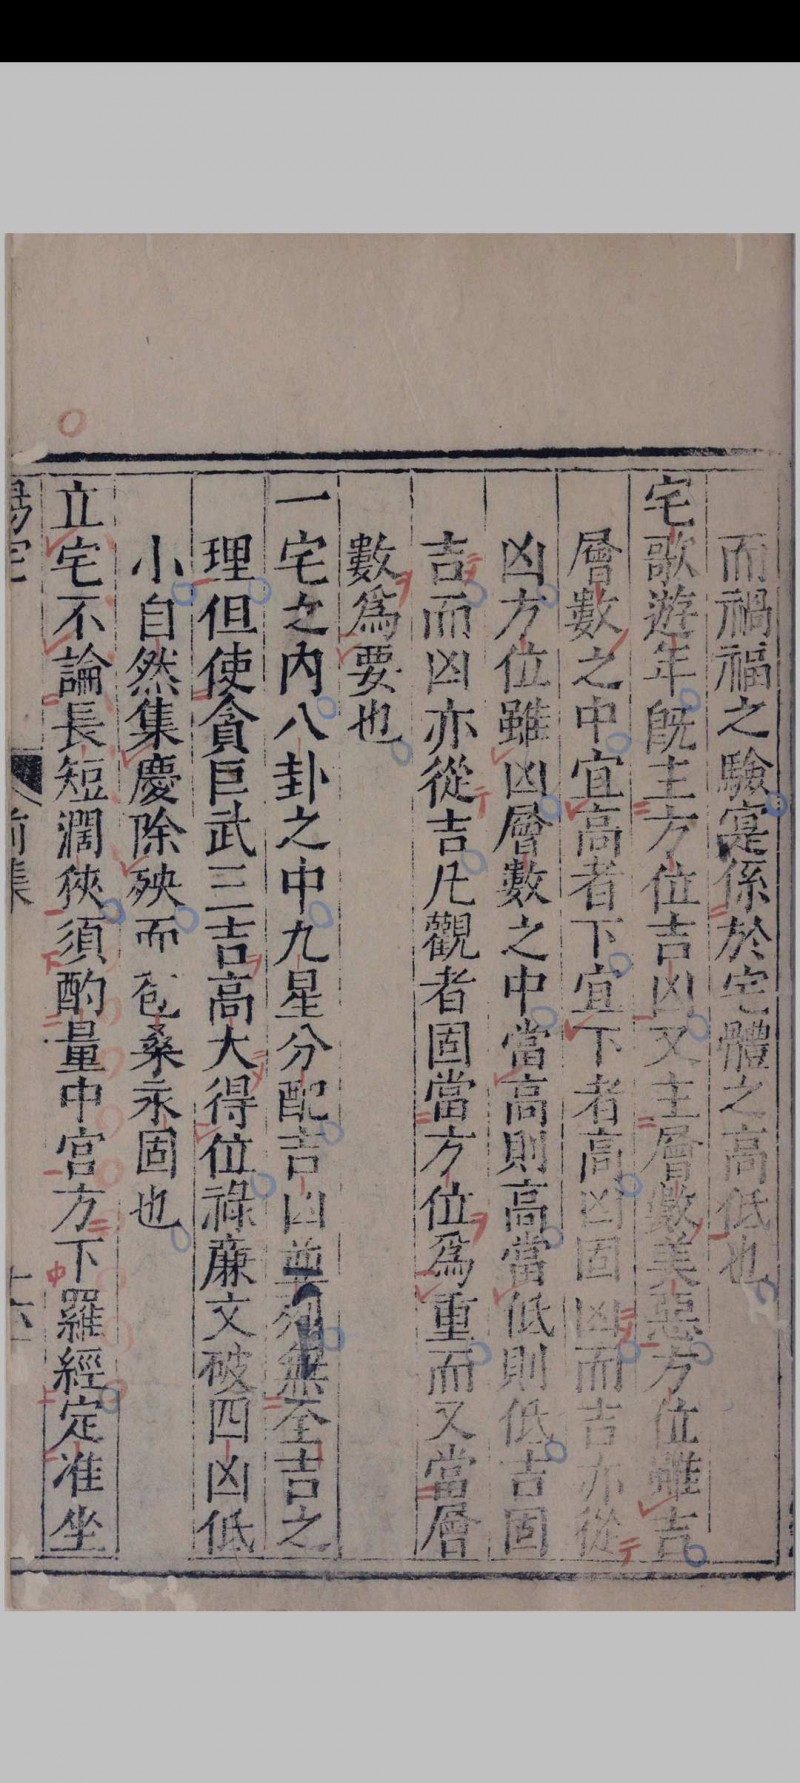 而禍福之驗寔係於宅體之高低也
宅歌遊年旣主方位吉凶又主層數美惡方位雖吉
層數之中宜高者下宜下者高凶固凶而吉亦從
凶方位雖凶層數之中當高則高當低則低吉固
吉而凶亦從吉凡觀者固當方位爲重而又當層
數爲要也
一宅之內八卦之中九星分配吉凶並無全吉之
理但使貪巨武三吉高大得位祿廉文破四凶低
小自然集慶除殃而苞桑永固也
立宅不論長短濶狹須酌量中宫方下羅經定准坐
陽宅 前集